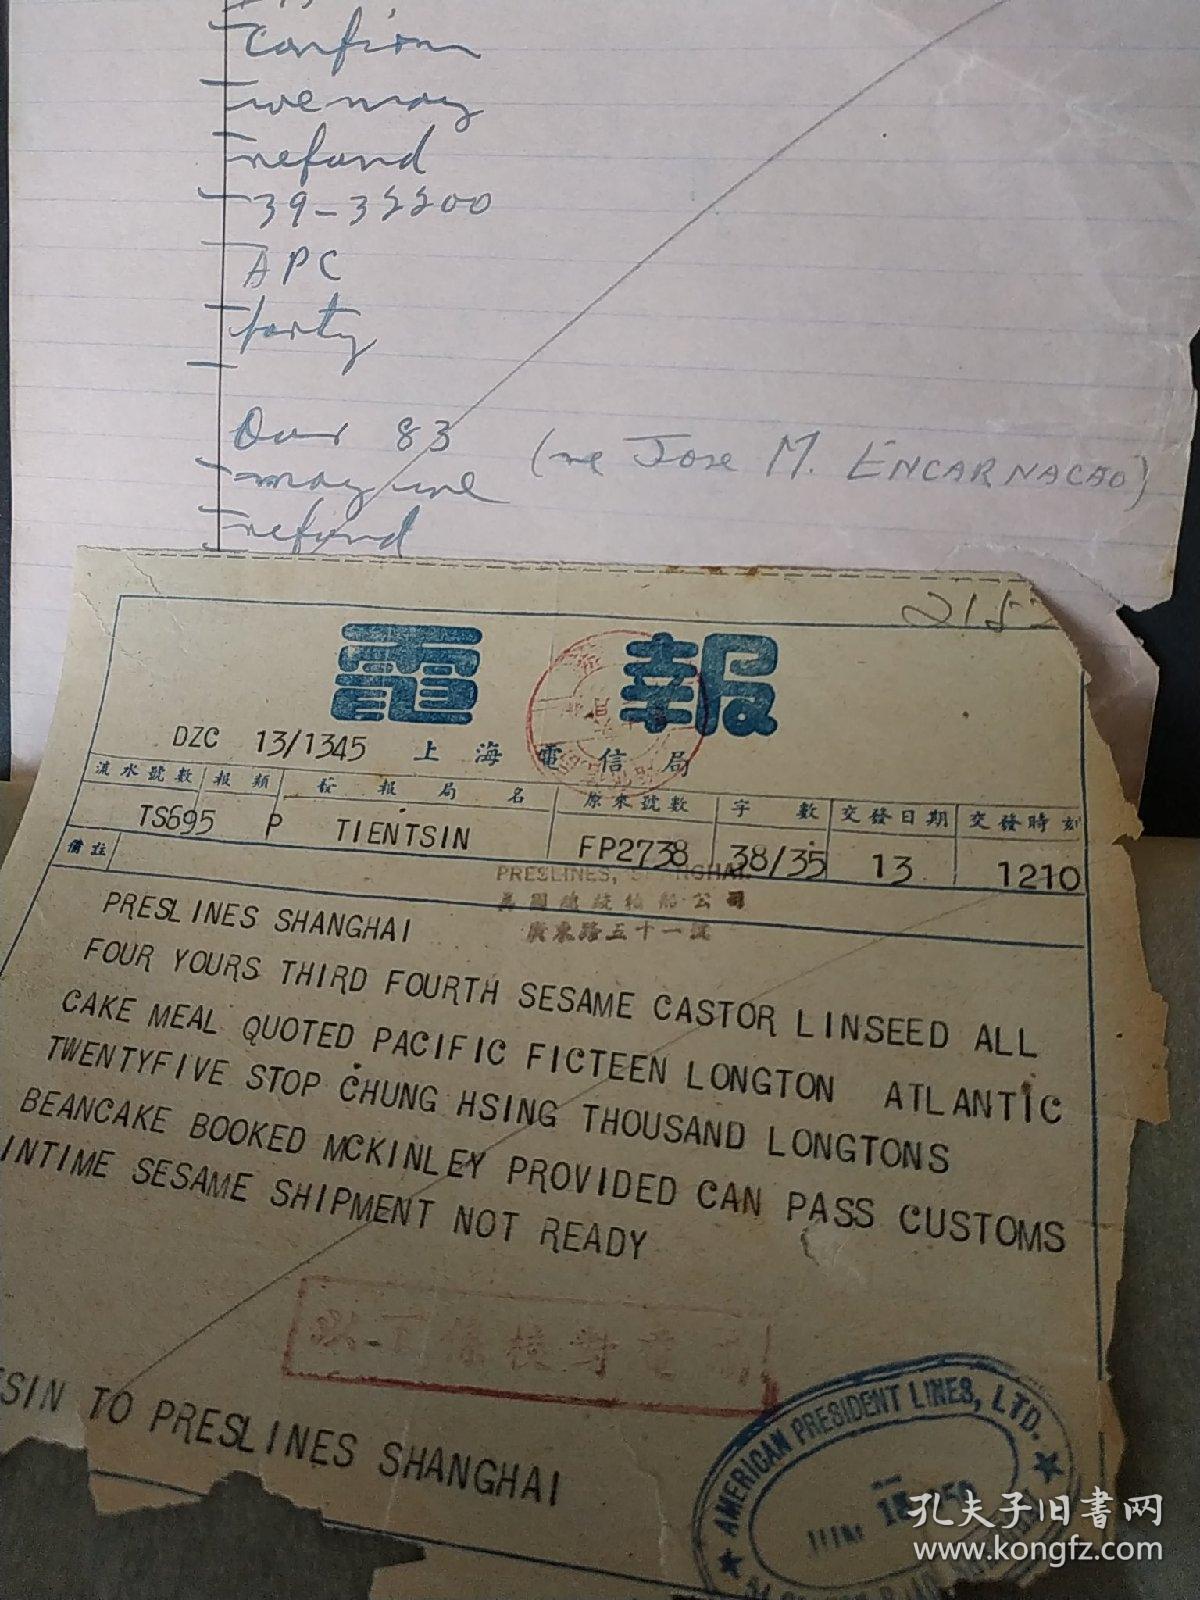 Confirm
we may
refund
39-35500
APC
party
Our 83 (re Jose M. ENCARNACAO)
may we
refund
電 報
DZC 13/1345 上海電信局
流水號數 報類 發報局名 原來號數 字數 交發日期 交發時刻
TS695 P TIENTSIN FP2738 38/35 13 1210
備註
PRESLINES, SHANGHAI.
美國總統輪船公司
廣東路五十一號
PRESLINES SHANGHAI
FOUR YOURS THIRD FOURTH SESAME CASTOR LINSEED ALL
CAKE MEAL QUOTED PACIFIC FICTEEN LONGTON ATLANTIC
TWENTYFIVE STOP CHUNG HSING THOUSAND LONGTONS
BEANCAKE BOOKED MCKINLEY PROVIDED CAN PASS CUSTOMS
INTIME SESAME SHIPMENT NOT READY
SIN TO PRESLINES SHANGHAI
AMERICAN PRESIDENT LINES, LTD.
孔夫子旧書网
www.kongfz.com